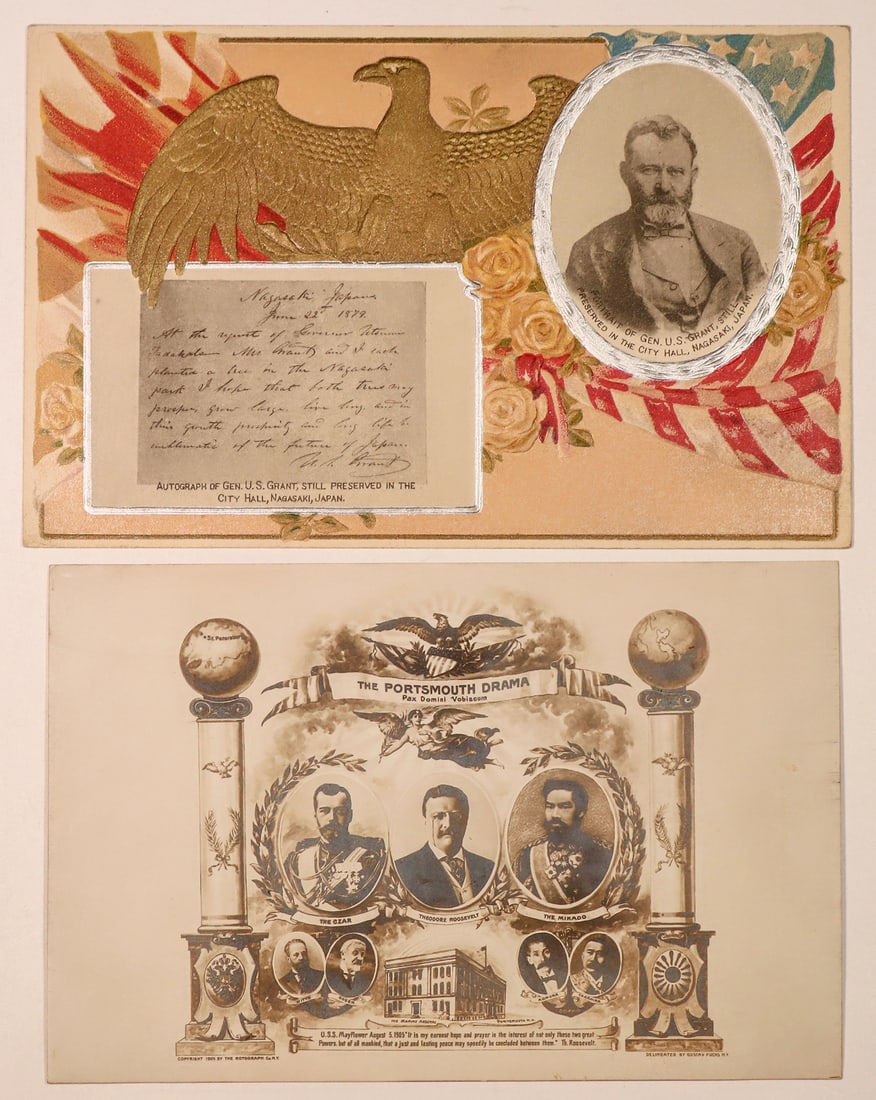 Nagasaki Japan
June 22nd 1879.
At the request of Governor Utsumi
Tadakatsu Mrs Grant and I each
planted a tree in the Nagasaki
park. I hope that both trees may
prosper, grow large, live long, and in
their growth, prosperity and long life be
emblematic of the future of Japan.
U. S. Grant
AUTOGRAPH OF GEN. U.S. GRANT, STILL PRESERVED IN THE
CITY HALL, NAGASAKI, JAPAN.
PORTRAIT OF GEN. U.S. GRANT, STILL
PRESERVED IN THE CITY HALL, NAGASAKI, JAPAN.
St. Petersburg
THE PORTSMOUTH DRAMA
Pax Domini Vobiscum
THE CZAR
THEODORE ROOSEVELT
THE MIKADO
WITTE
ROSEN
PORTSMOUTH N.H.
U.S.S. Mayflower August 5, 1905 "It is my earnest hope and prayer in the interest of not only these two great
Powers, but of all mankind, that a just and lasting peace may speedily be concluded between them." Th. Roosevelt.
COPYRIGHT 1905 BY THE ROTOGRAPH Co. N.Y.
DELINEATED BY GUSTAV FUCHS N.Y.